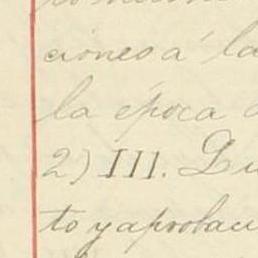 ciones á la
la época
2) III. Du
to y aprobaci